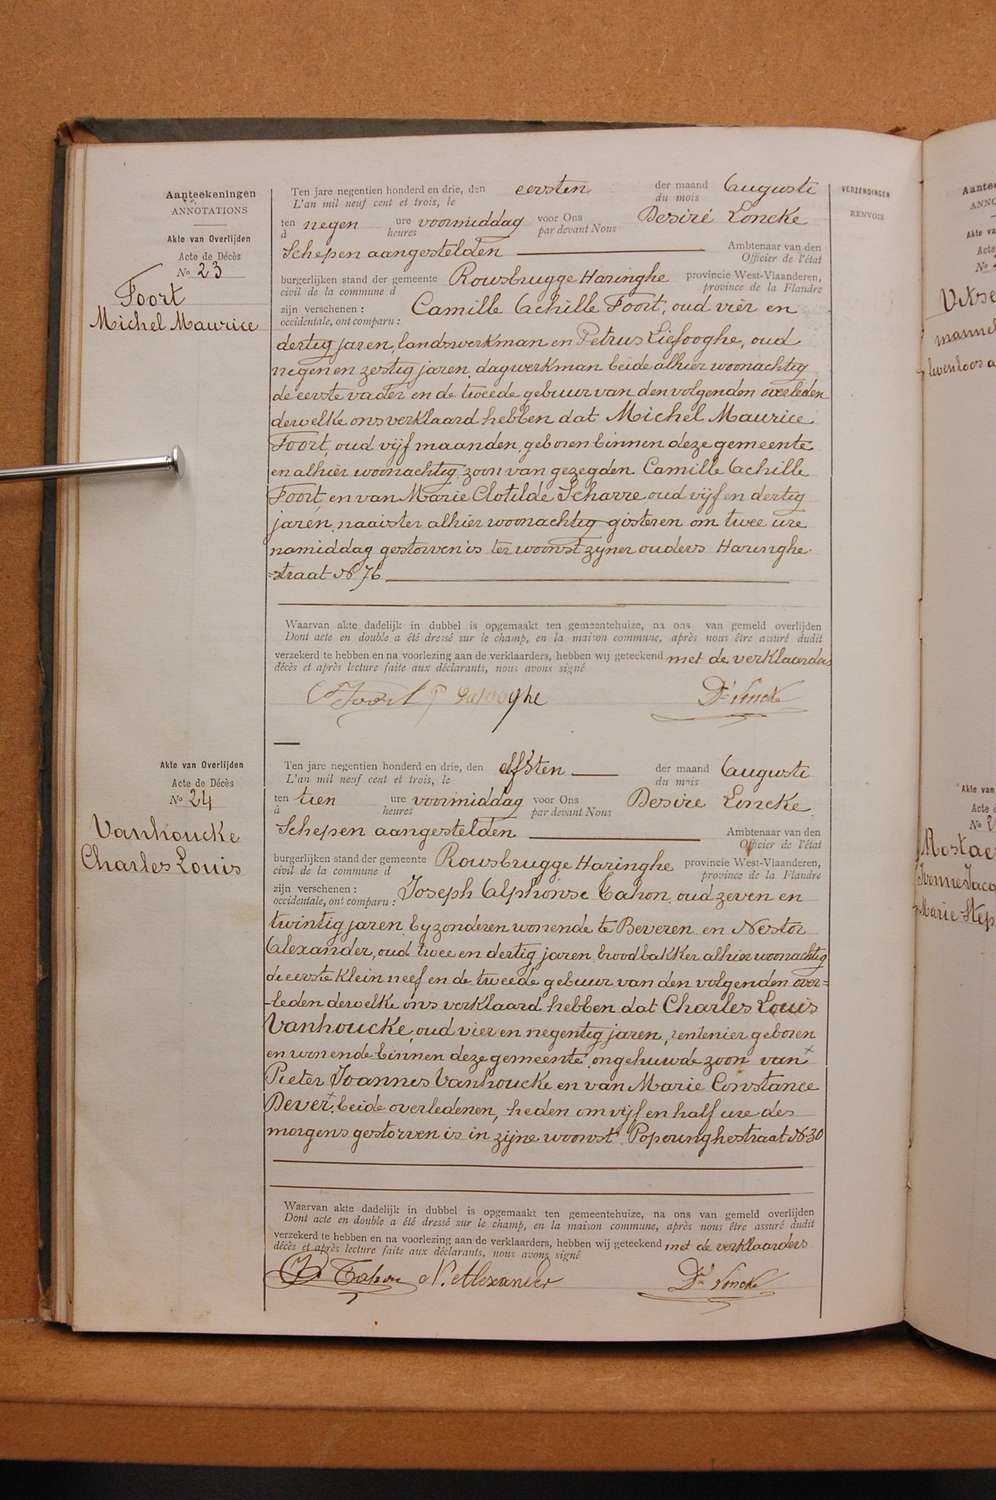 Aanteekeningen
ANNOTATIONS
Akte van Overlijden
Acte de Décès
No 23
Foort
Michel Maurice
Ten jare negentien honderd en drie, den eersten der maand Augusti
L'an mil neuf cent et trois, le du mois
ten negen ure voormiddag voor Ons Desiré Loncke
à heures par devant Nous
Schepen aangestelden Ambtenaar van den
Officier de l'état
burgerlijken stand der gemeente Rousbrugge Haringhe provincie West-Vlaanderen,
civil de la commune d province de la Flandre
zijn verschenen : Camille Achille Foort, oud vier en
occidentale, ont comparu :
dertig jaren, landswerkman en Petrus Liefooghe, oud
negen en zestig jaren, dagwerkman beide alhier woonachtig
de eerste vader en de tweede gebuur van den volgenden overleden
dewelke ons verklaard hebben dat Michel Maurice
Foort, oud vijf maanden, geboren binnen deze gemeente
en alhier woonachtig, zoon van gezegden Camille Achille
Foort, en van Marie Clotilde Scharre oud vijf en dertig
jaren, naaister alhier woonachtig gisteren om twee ure
namiddag gestorven is ter woonst zijner ouders Haringhe
straat No 76
Waarvan akte dadelijk in dubbel is opgemaakt ten gemeentehuize, na ons van gemeld overlijden
Dont acte en double a été dressé sur le champ, en la maison commune, après nous être assuré dudit
verzekerd te hebben en na voorlezing aan de verklaarders, hebben wij geteekend met de verklaarders
décès et après lecture faite aux déclarants, nous avons signé
C Foort P Liefooghe Dé Loncke
Akte van Overlijden
Acte de Décès
No 24
Vanhoucke
Charles Louis
Ten jare negentien honderd en drie, den elfsten der maand Augusti
L'an mil neuf cent et trois, le du mois
ten tien ure voormiddag voor Ons Desiré Loncke
à heures par devant Nous
Schepen aangestelden Ambtenaar van den
Officier de l'état
burgerlijken stand der gemeente Rousbrugge Haringhe provincie West-Vlaanderen,
civil de la commune d province de la Flandre
zijn verschenen : Joseph Alphonse Cahon, oud zeven en
occidentale, ont comparu :
twintig jaren, byzonderen wonende te Beveren en Nestor
Alexander, oud twee en dertig jaren, broodbakker alhier woonachtig
de eerste klein neef en de tweede gebuur van den volgenden over=
=leden dewelke ons verklaard hebben dat Charles Louis
Vanhoucke, oud vier en negentig jaren, rentenier geboren
en wonende binnen deze gemeente, ongehuwde zoon van
Pieter Joannes Vanhoucke en van Marie Constance
Dever, beide overledenen, heden om vijf en half ure des
morgens gestorven is in zijne woonst Poperinghestraat No 30
Waarvan akte dadelijk in dubbel is opgemaakt ten gemeentehuize, na ons van gemeld overlijden
Dont acte en double a été dressé sur le champ, en la maison commune, après nous être assuré dudit
verzekerd te hebben en na voorlezing aan de verklaarders, hebben wij geteekend met de verklaarders
décès et après lecture faite aux déclarants, nous avons signé
Cahon N. Alexander Dé Loncke
VERZENDINGEN
RENVOIS